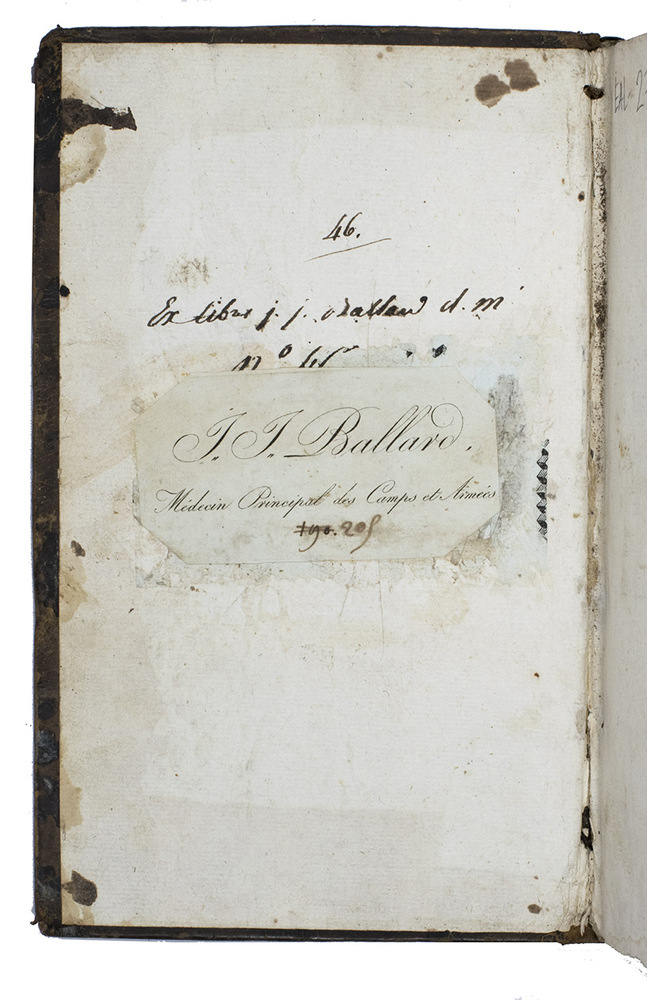 46.
Ex libris j. j. Ballard d. m
n°
J. J. Ballard,
Médecin Principal des Camps et Armées
190. 205
EAL